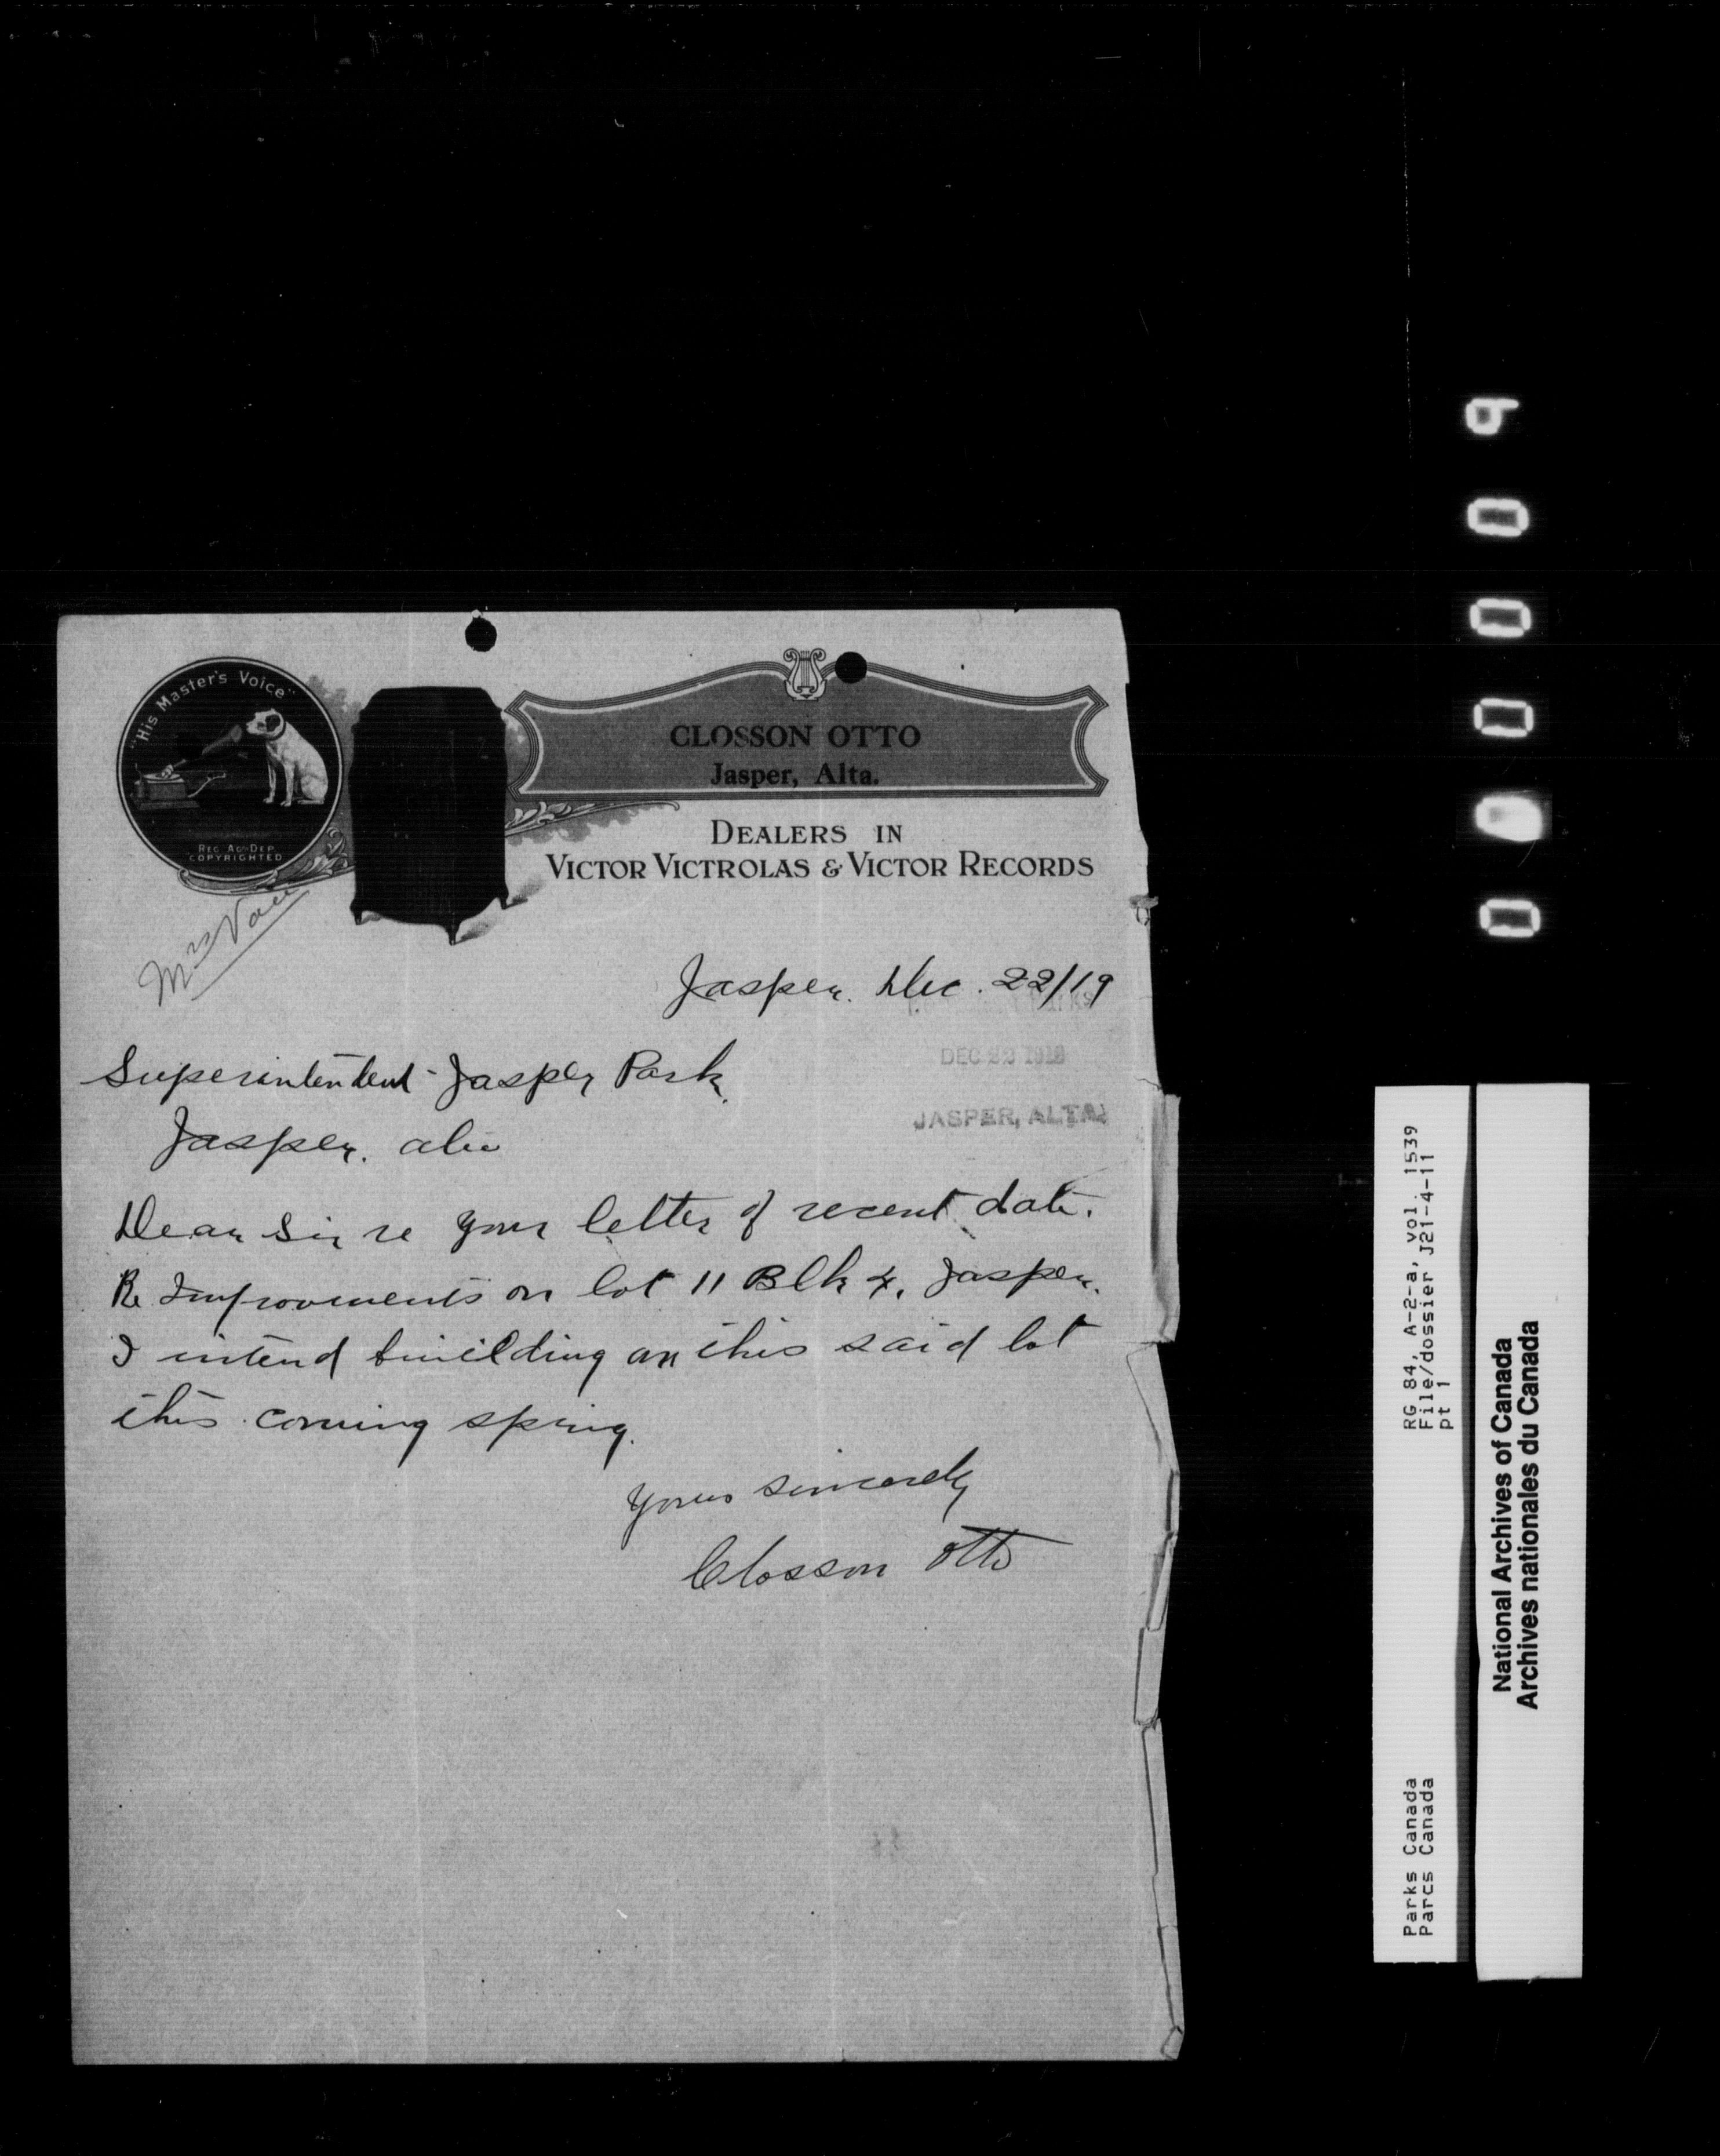 "His Master's Voice"
REG. AC. DEP.
COPYRIGHTED
CLOSSON OTTO
Jasper, Alta.
DEALERS IN
VICTOR VICTROLAS & VICTOR RECORDS
Mrs
Jasper. Dec. 22/19
DEC 22 1919
JASPER, ALTA
Superintendent Jasper Park
Jasper. Alta
Dear Sir re your letter of recent date.
Re Improvements on lot 11 Blk 4, Jasper.
I intend building on this said lot
this coming spring.
Yours sincerely
Closson Otto
000009
RG 84, A-2-a, vol. 1539
File/dossier J21-4-11
pt 1
Parks Canada
Parcs Canada
National Archives of Canada
Archives nationales du Canada